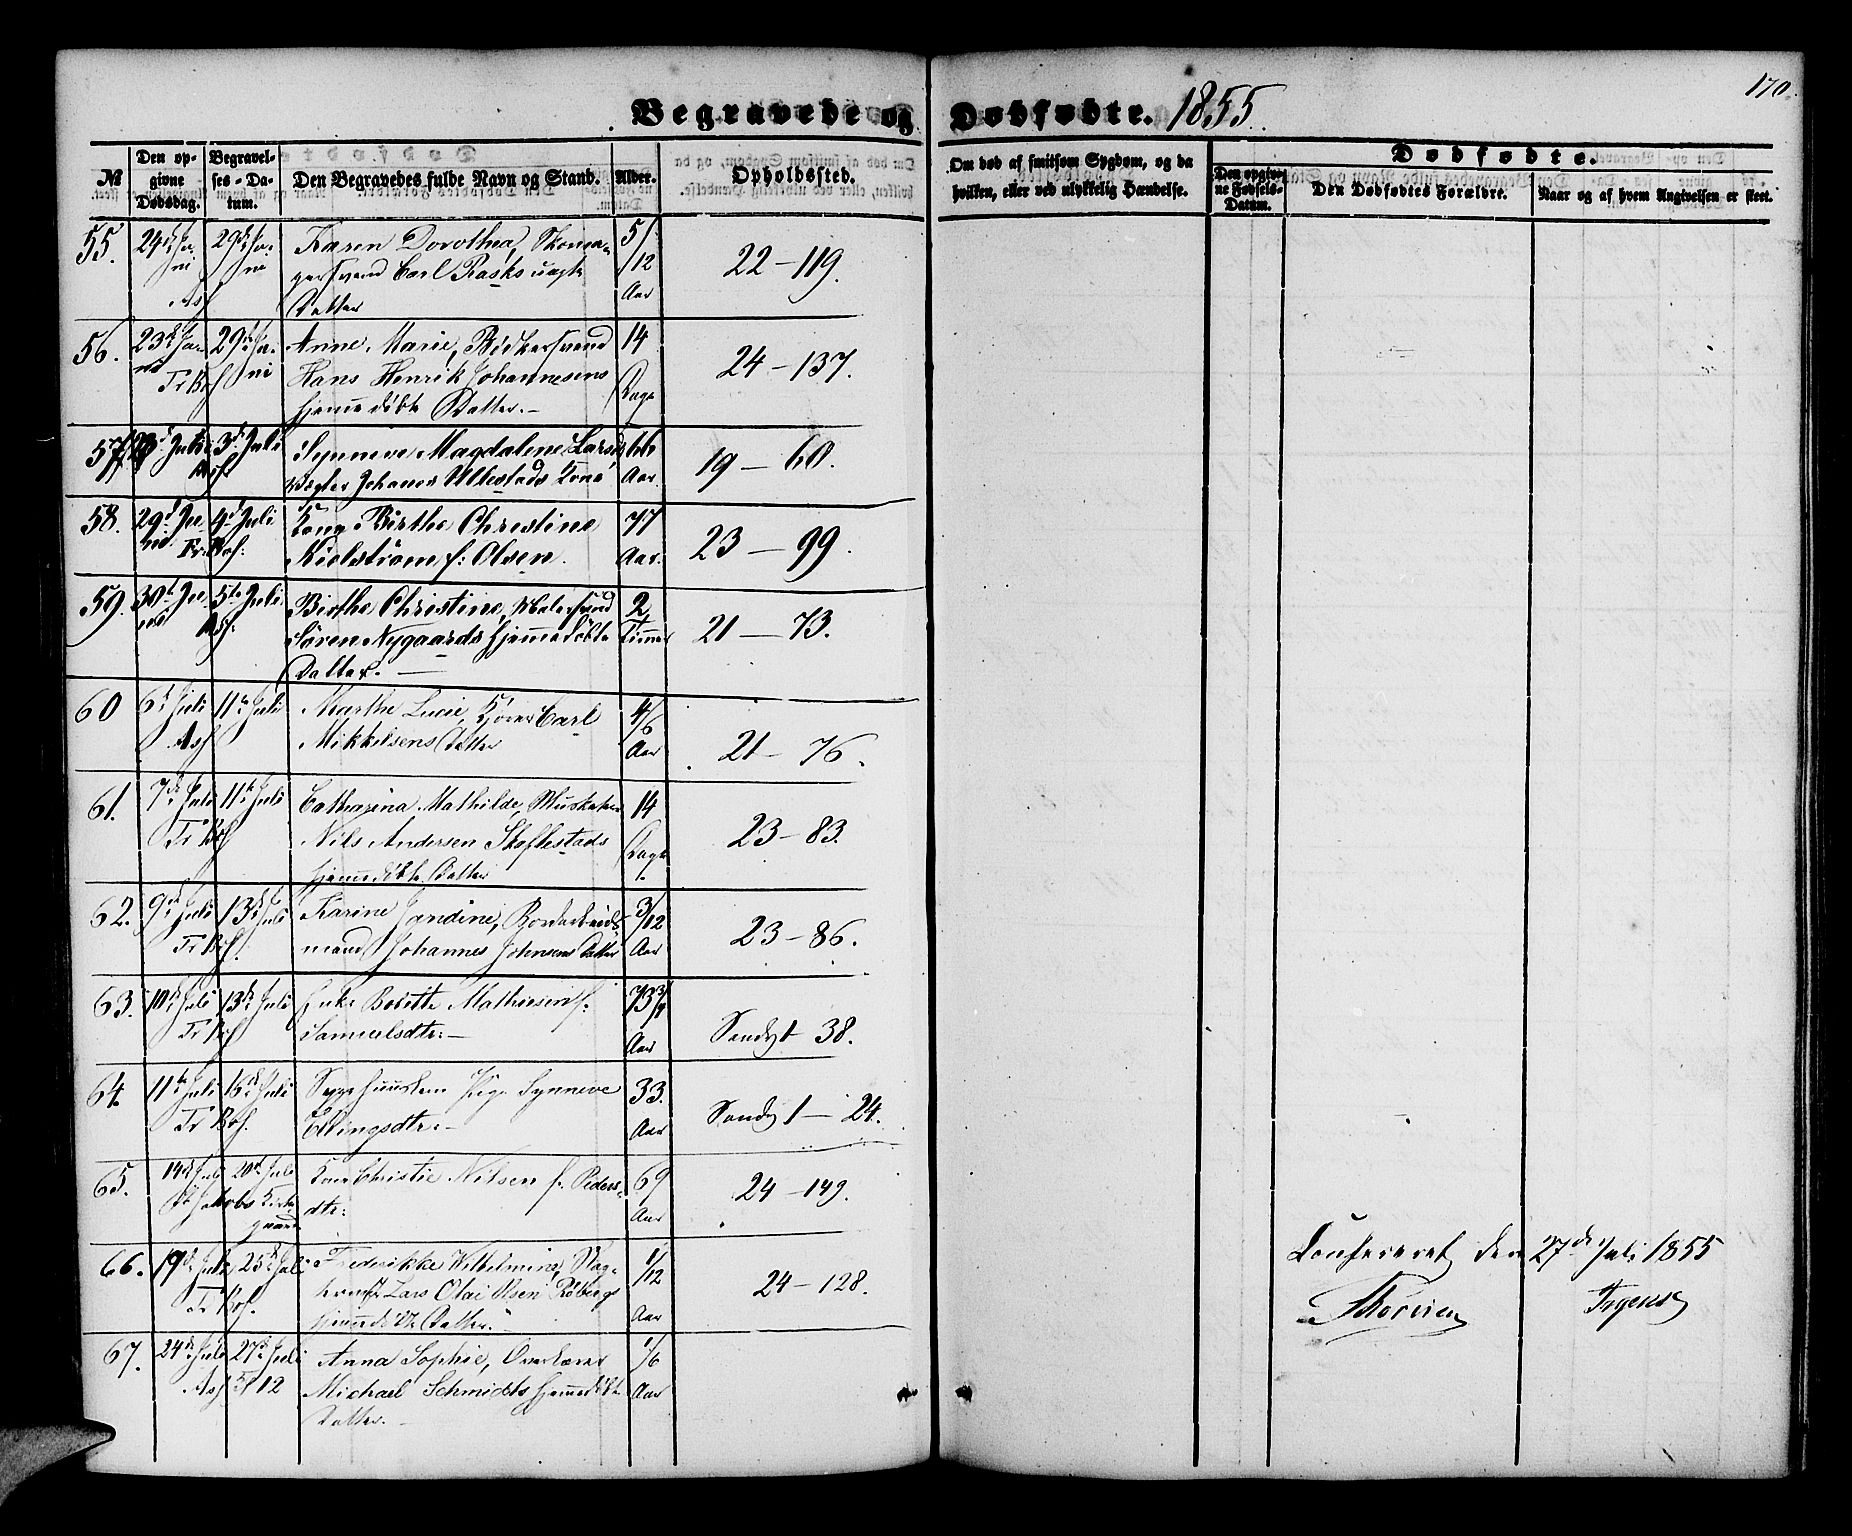 170.
Begravede og Dødfødte. 1855.
№
Den opgivne Dødsdag.
Begravelses-Datum.
Den Begravedes fulde Navn og Stand.
Alder.
Opholdssted.
Om død af smitsom Sygdom, og da hvilken, eller ved ulykkelig Hændelse.
Dødfødte.
Den opgivne Fødsels-Datum.
Den Dødfødtes Forældre.
Naar og af hvem Angivelsen er skeet.
55. 24de Ju- 29de Ju- Karen Dorothea, Skoma- 5/12
ni ni gersvend Carl Rasks uægte Aar 22-119.
Asf Datter
56. 23de Ju- 29de Ju- Anne Marie, Bødkersvend 14
ni ni Hans Henrik Johannesens Dage 24-137.
Fr Kof hjemmedøbte Datter.-
57. 3de Juli Synneve Magdalene Lars 66
Asf Vægter Johannes Ullestads Kone Aar. 19-60.
58. 29de Ju- 4de Juli Kone Birthe Christine 77
ni. Fr. Kof: Kielstrøm f: Olsen. Aar. 23-99.
59. 30te Ju- 5te Juli Birthe Christine, Malersvend 2
ni Asf. Søren Nygaards hjemmedøbte Timer 21-73.
Datter.-
60 6te Juli 11te Juli Marthe Lucie, Kjører Carl 4/6
Asf Mikkelsens Datter Aar 21-76.
61. 7de Juli 11te Juli Catharina Mathilde, Muskateer 14
Fr Kof Nils Andersen Skeflestads Dage 23-83.
hjemmedøbte Datter
62. 9de Juli 13de Juli Karine Jandine, Bordarbeids- 3/12
Fr Kof. mand Johannes Johnsens Datter Aar 23-86.
63. 10de Juli 13de Juli Enke Bolette Mathiesen f: 73
Fr Kof Samuelsdtr:- Aar Sandv 1-38.
64. 11te Juli 16de Juli Pige Synneve 33.
Fr Kof. Ellingsdtr:- Aar Sandv 1-24.
65. 14de Juli 20de Juli Kone Christie Nilsen f. Peders- 69
St Jakobs Kirke- dtr: Aar 24-149.
gaard
66. 19de Juli 25de Juli Fredrikke Wilhelmine, 1/12
Fr Kof. Lars Olai Olsen Aar 24-128.
hjemmedøbte Datter.
67. 24de Juli 27de Juli Anna Sophie, 1/6
Asf 5/12 Michael Schmidts hjemmedøbte Aar
Datter.-
Confereret den 27de Juli 1855
Irgens